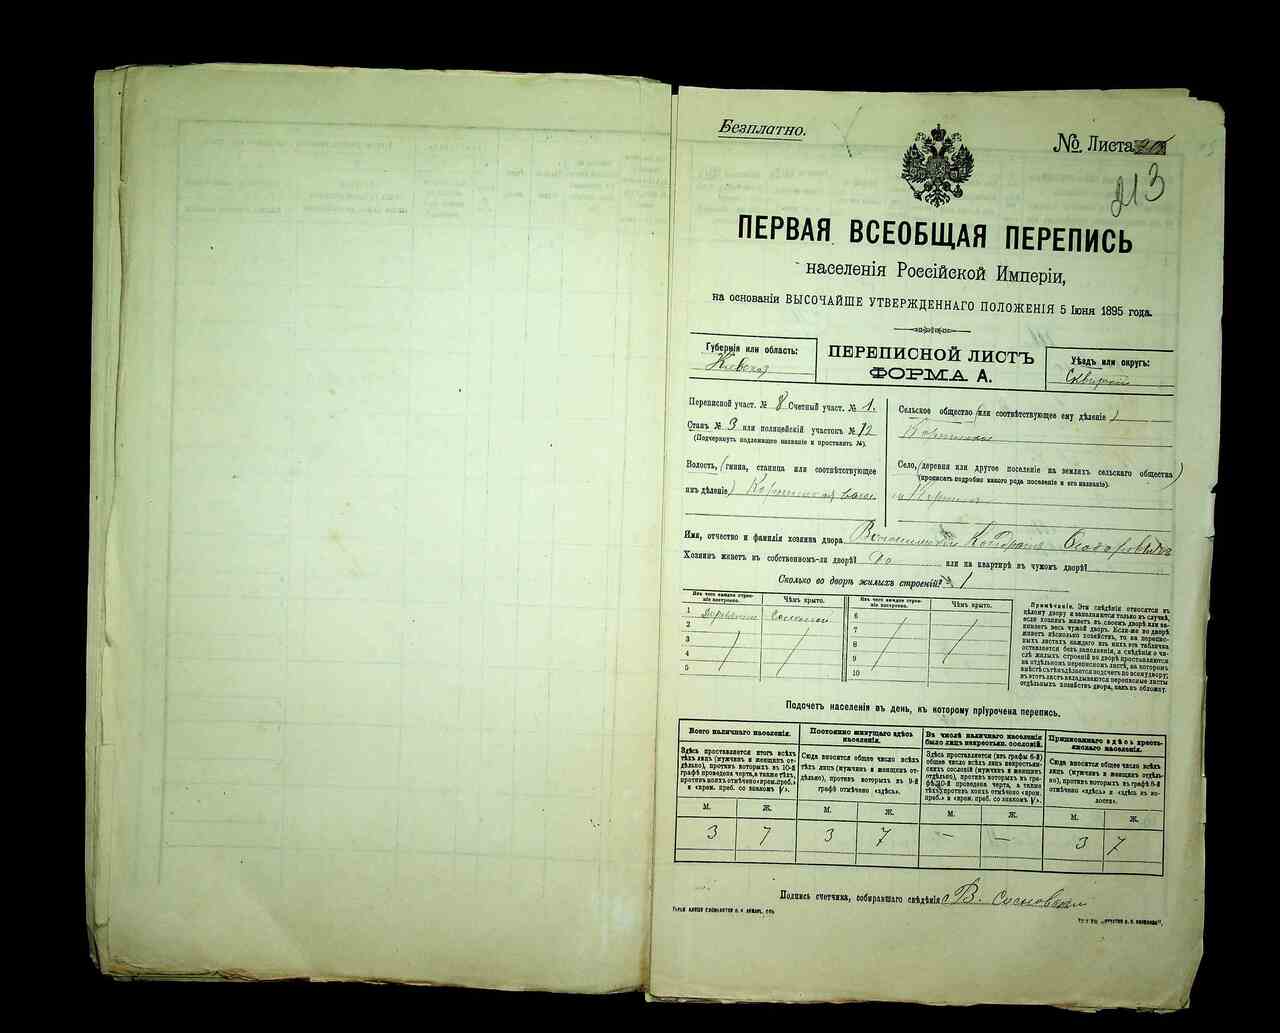 Безплатно.
№ Листа
213
ПЕРВАЯ ВСЕОБЩАЯ ПЕРЕПИСЬ
населенія Россійской Имперіи,
на основаніи ВЫСОЧАЙШЕ УТВЕРЖДЕННАГО ПОЛОЖЕНІЯ 5 Іюня 1895 года.
Губернія или область:
Кіевская
ПЕРЕПИСНОЙ ЛИСТЪ
ФОРМА А.
Уѣздъ или округъ:
Сквирскій
Переписной участ. № 8 Счетный участ. № 1.
Станъ № 3 или полицейскій участокъ № 12
(Подчеркнуть надлежащее названіе и проставить №).
Волость, (гмина, станица или соотвѣтствующее
имъ дѣленіе)
Сельское общество (или соотвѣтствующее ему дѣленіе)
Село, (деревня или другое поселеніе на земляхъ сельскаго общества)
(прописать подробно какого рода поселеніе и его названіе).
Имя, отчество и фамилія хозяина двора
Хозяинъ живетъ въ собственномъ-ли дворѣ? да или на квартирѣ въ чужомъ дворѣ?
Сколько во дворѣ жилыхъ строеній? 1
Изъ чего каждое строеніе построено. Чѣмъ крыто. Изъ чего каждое строеніе построено. Чѣмъ крыто.
1 Соломой 6
2 7
3 8
4 9
5 10
Примѣчаніе. Эти свѣдѣнія относятся къ
цѣлому двору и заполняются только въ случаѣ,
если хозяинъ живетъ въ своемъ дворѣ или занимаетъ
весь чужой дворъ. Если-же во дворѣ
живетъ нѣсколько хозяйствъ, то на переписныхъ
листахъ каждаго изъ нихъ эта табличка
оставляется безъ заполненія, а свѣдѣнія о числѣ
жилыхъ строеній во дворѣ проставляются
на отдѣльномъ переписномъ листѣ, на которомъ
вмѣстѣ съ тѣмъ дѣлается подсчетъ по всему двору;
въ этотъ листъ вкладываются переписные листы
отдѣльныхъ хозяйствъ двора, какъ въ обложку.
Подсчетъ населенія въ день, къ которому пріурочена перепись.
Всего наличнаго населенія.
Здѣсь проставляется итогъ всѣхъ
тѣхъ лицъ (мужчинъ и женщинъ отдѣльно),
противъ которыхъ въ 10-й
графѣ проведена черта, а также тѣхъ,
противъ коихъ отмѣчено «врем. преб.»
и «врем. преб. со знакомъ V».
Постоянно живущаго здѣсь населенія.
Сюда вносится общее число всѣхъ
тѣхъ лицъ (мужчинъ и женщинъ отдѣльно),
противъ которыхъ въ 9-й
графѣ отмѣчено «здѣсь».
Въ числѣ наличнаго населенія было лицъ некрестьян. сословій.
Здѣсь проставляется (изъ графы 6-й)
общее число всѣхъ лицъ некрестьянскихъ
сословій (мужчинъ и женщинъ
отдѣльно), противъ которыхъ въ графѣ
10-й проведена черта, а также
тѣхъ, противъ коихъ отмѣчено «врем.
преб.» и «врем. преб. со знакомъ V».
Приписаннаго здѣсь крестьянскаго населенія.
Сюда вносится общее число всѣхъ
лицъ (мужчинъ и женщинъ отдѣльно),
противъ которыхъ въ графѣ 8-й
отмѣчено «здѣсь» и «здѣсь въ волости».
М. Ж. М. Ж. М. Ж. М. Ж.
3 7 3 7 — — 3 7
Подпись счетчика, собиравшаго свѣдѣнія В. Сосновскій